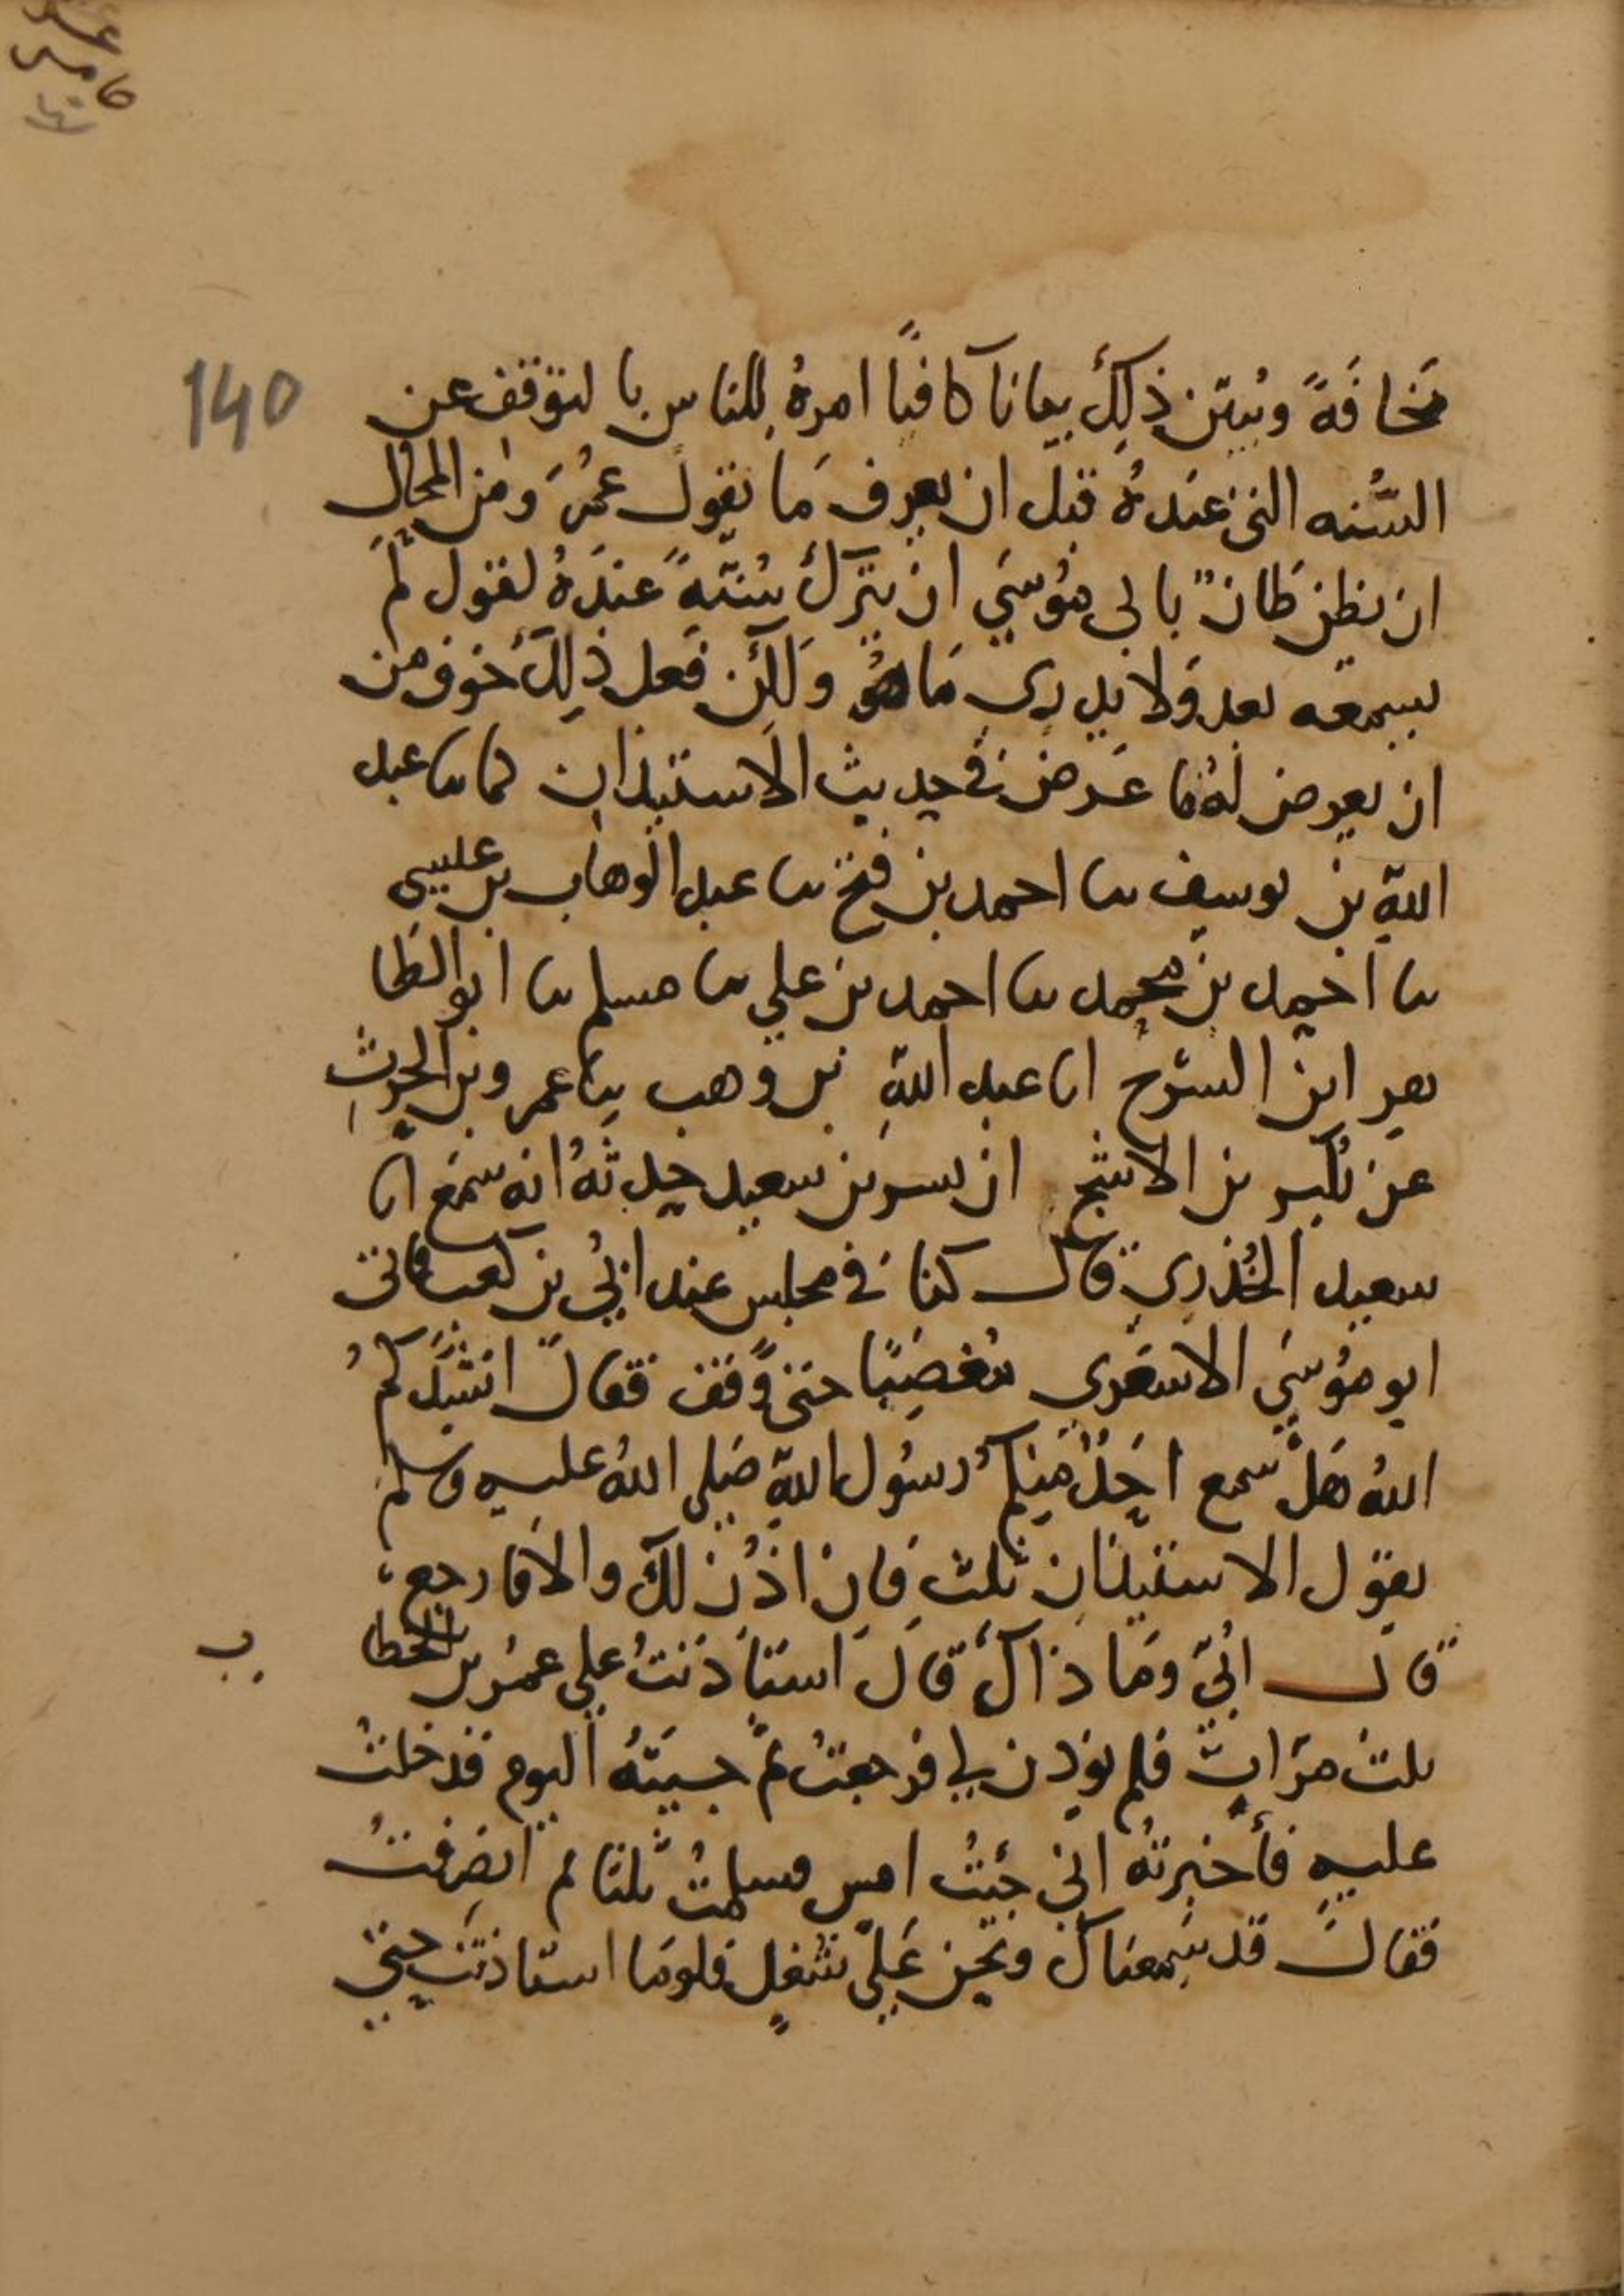 140
مَخافَةً ويُبيّن ذلِكَ بيانا كافيًا امرهُ للناس بالتوقف عن
السُّنه التي عندهُ قبل ان يعرف مَا يقول عُمَرُ ومن المحال
ان يظن ظان بابى مُوسَى ان يترك سُنّةً عندَهُ لقول لم
يسمعه بعد ولا يدرى مَا هُو ولكن فعل ذلِكَ خوف من
ان يعرض لهُ ما عرض في حديث الاستيذان كما ىا عبد
اللهِ بن يوسف ىا احمد بن فتح ىا عبد الوهاب بن عيسى
ىا احمد بن محمد ىا احمد بن علي ىا مسلم ىا ابو الطا
هر ابن السرح انا عبد اللهِ بن وهب ىا عمرو بن الحرث
عن بكير بن الاشج ان بسر بن سعيد حدثهُ انه سَمع ابا
سعيد الخُدري قال كنا في مجلس عند اُبي بن كعب فاتى
ابو مُوسَى الاشعَرى مُغضَبًا حتى وَقف فقال انشدكمُ
اللهُ هَل سَمع اَحَدٌ منكم رسُول اللهِ صَلى اللهُ عليه وسلم
يقول الاستيذان ثلث فان اذُن لك والا فارجع
قال اُبيّ ومَا ذاكَ قالَ استاذَنتُ على عمُر بن الخطا
ب
ثلث مرّات فلم يؤذن لي فرجعتُ ثم جيتهُ اليوم فدخلتُ
عليهِ فأخبرتهُ اني جئتُ امس فسلمتُ ثلثا ثم انصرفتُ
فقال قد سَمعناكَ ونحن عَلى شُغل فلو مَا استاذنتَ حتى